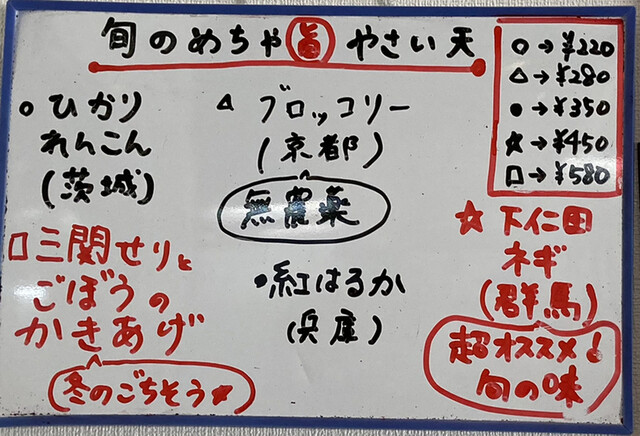 旬のめちゃ旨やさい天
○→¥220
△→¥280
●→¥350
★→¥450
□→¥580
○ひかり
れんこん
(茨城)
△ブロッコリー
(京都)
無農薬
★下仁田
ネギ
(群馬)
超オススメ!
旬の味
□三関せりと
ごぼうの
かきあげ
冬のごちそう★
●紅はるか
(兵庫)